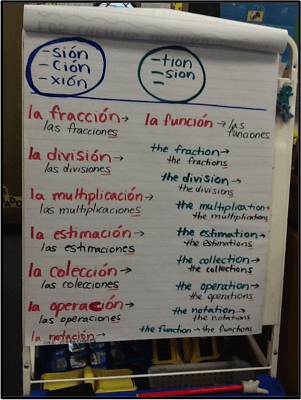 -sión
-ción
-xión
-tion
-sion
la fracción→
las fracciones
la función→las
funciones
la división→
las divisiones
la multiplicación→
las multiplicaciones
la estimación→
las estimaciones
la colección→
las colecciones
la operación→
las operaciones
la notación→
the fraction→
the fractions
the division→
the divisions
the multiplication→
the multiplications
the estimation→
the estimations
the collection→
the collections
the operation→
the operations
the notation→
the notations
the function→the functions